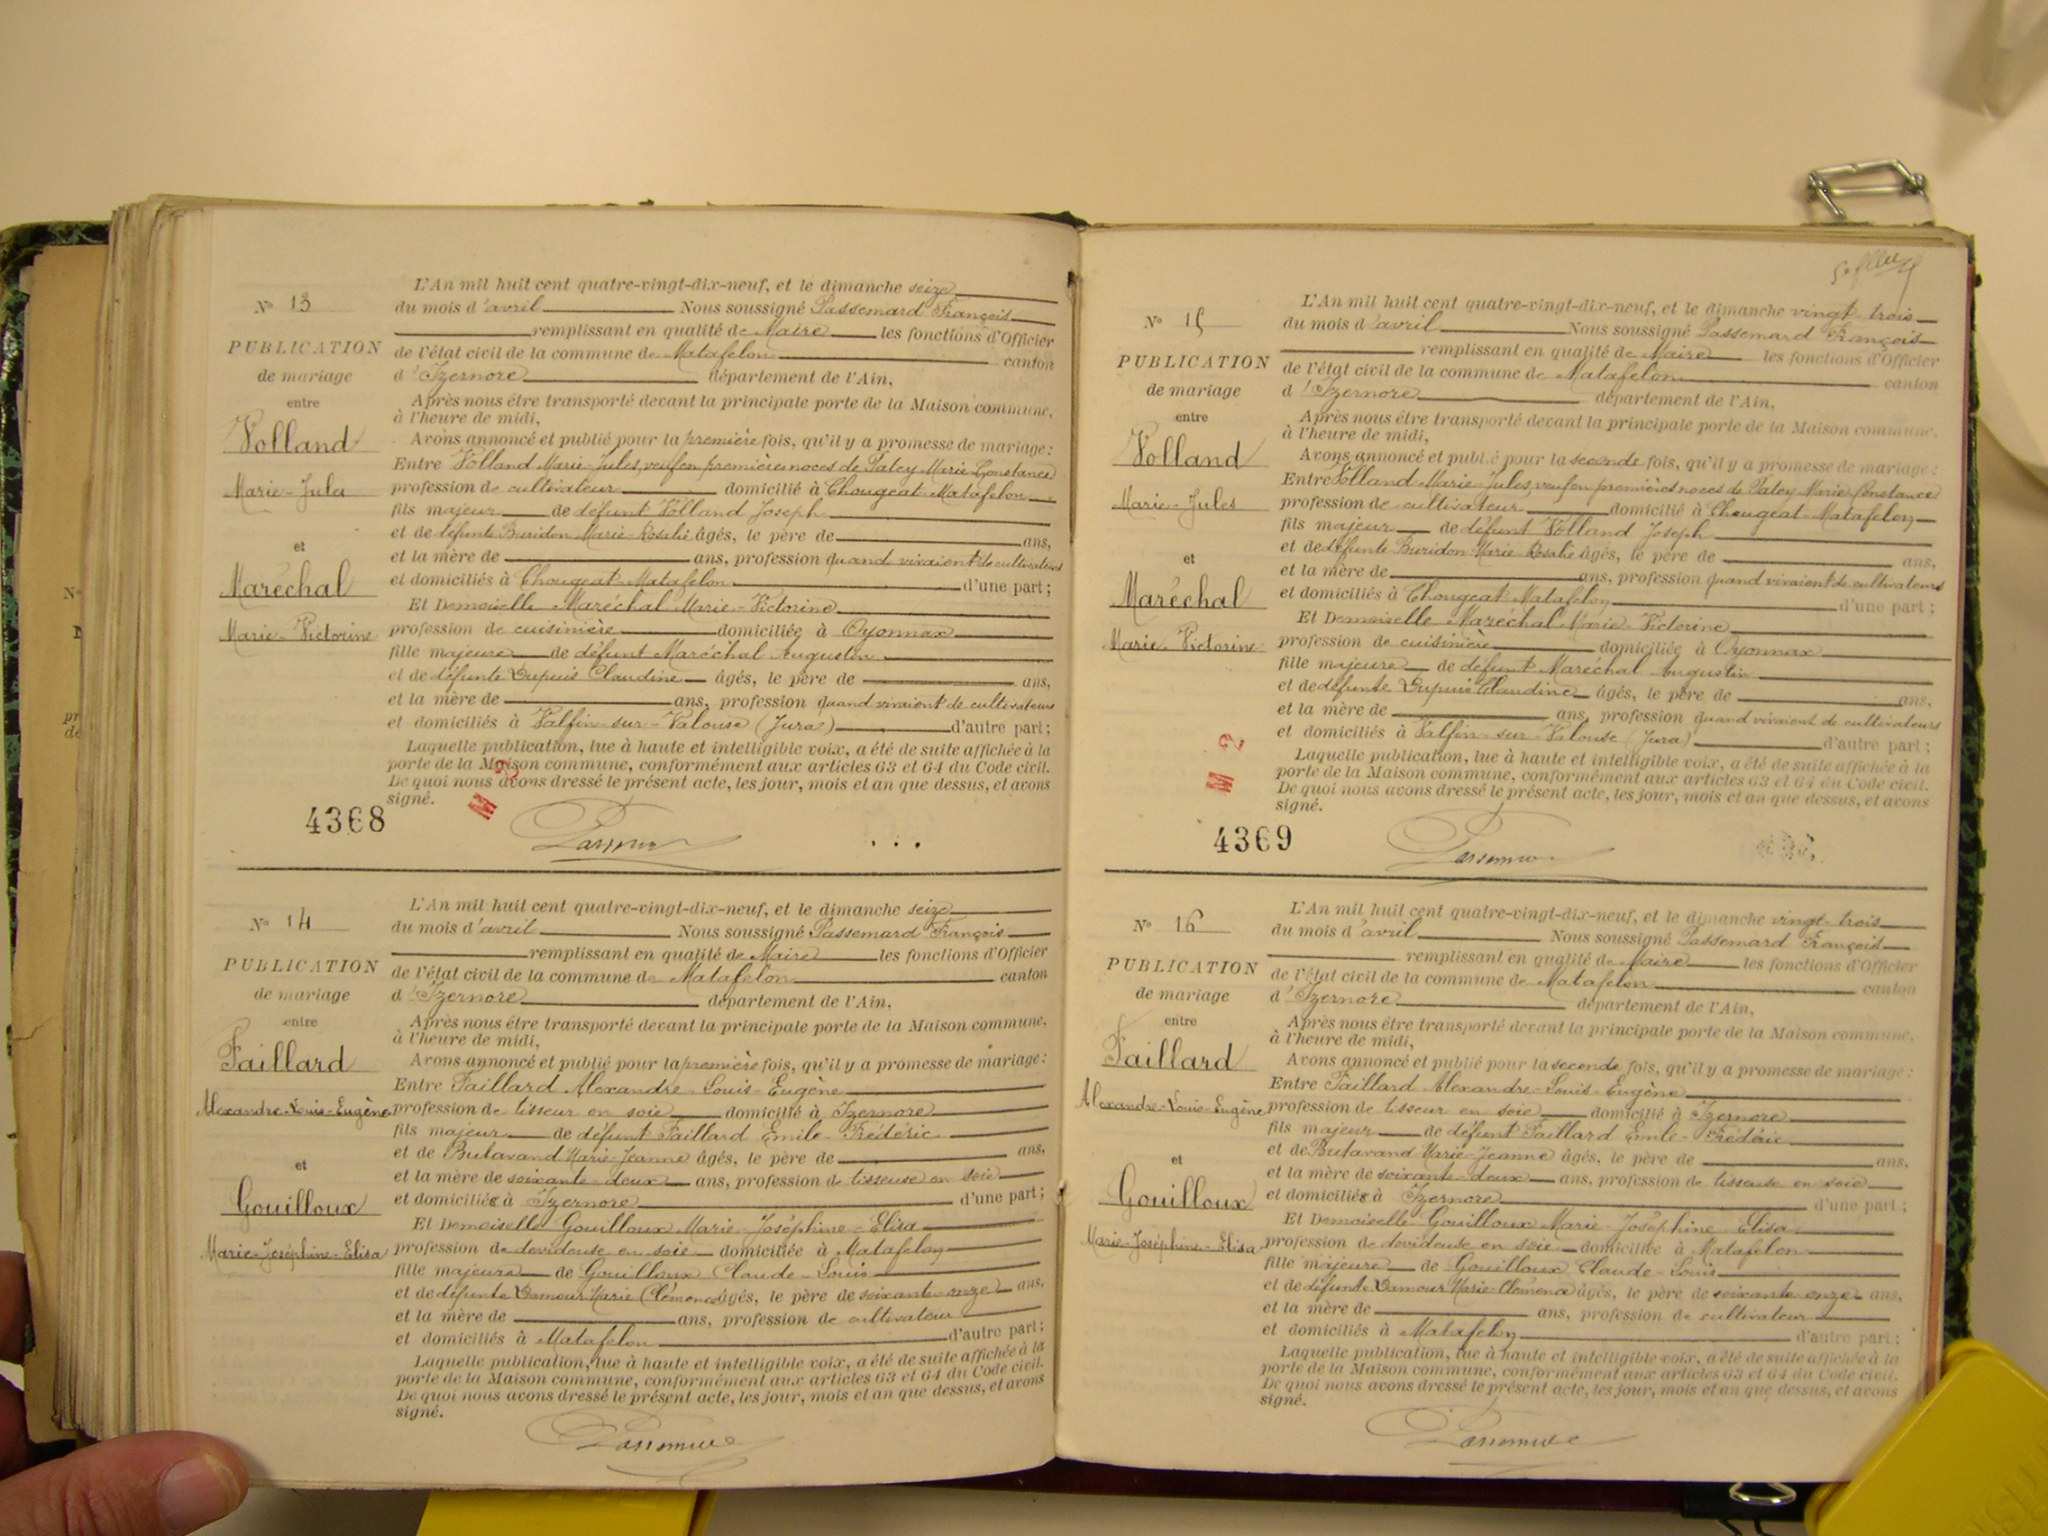 N° 13
PUBLICATION
de mariage
entre
Volland
Marie-Jula
et
Maréchal
Marie-Victorine
L'An mil huit cent quatre-vingt-dix-neuf, et le dimanche seize
du mois d'avril Nous soussigné Passemard François
remplissant en qualité de Maire les fonctions d'Officier
de l'état civil de la commune de Matafelon canton
d'Izernore département de l'Ain,
Après nous être transporté devant la principale porte de la Maison commune,
à l'heure de midi,
Avons annoncé et publié pour la première fois, qu'il y a promesse de mariage:
Entre Volland Marie-Jules, veuf en premières noces de Patey Marie Constance
profession de cultivateur domicilié à Chougeat-Matafelon
fils majeur de défunt Volland Joseph
et de défunte Buridon Marie-Rosalie âgés, le père de ans,
et la mère de ans, profession quand vivaient de cultivateurs
et domiciliés à Chougeat-Matafelon d'une part;
Et Demoiselle Maréchal Marie-Victorine
profession de cuisinière domiciliée à Oyonnax
fille majeure de défunt Maréchal Augustin
et de défunte Dupuis Claudine âgés, le père de ans,
et la mère de ans, profession quand vivaient de cultivateurs
et domiciliés à Valfin-sur-Valouse (Jura) d'autre part;
Laquelle publication, lue à haute et intelligible voix, a été de suite affichée à la
porte de la Maison commune, conformément aux articles 63 et 64 du Code civil.
De quoi nous avons dressé le présent acte, les jour, mois et an que dessus, et avons
signé.
M 2
4368
N° 14
PUBLICATION
de mariage
entre
Faillard
Alexandre-Louis-Eugène
et
Gouilloux
Marie-Joséphine-Elisa
L'An mil huit cent quatre-vingt-dix-neuf, et le dimanche seize
du mois d'avril Nous soussigné Passemard François
remplissant en qualité de Maire les fonctions d'Officier
de l'état civil de la commune de Matafelon canton
d'Izernore département de l'Ain,
Après nous être transporté devant la principale porte de la Maison commune,
à l'heure de midi,
Avons annoncé et publié pour la première fois, qu'il y a promesse de mariage:
Entre Faillard Alexandre-Louis-Eugène
profession de tisseur en soie domicilié à Izernore
fils majeur de défunt Faillard Emile-Frédéric
et de Butavand Marie-Jeanne âgés, le père de ans,
et la mère de soixante-deux ans, profession de tisseuse en soie
et domiciliés à Izernore d'une part;
Et Demoiselle Gouilloux Marie-Joséphine-Elisa
profession de dévideuse en soie domiciliée à Matafelon
fille majeure de Gouilloux Claude-Louis
et de défunte Damour Marie Clémence âgés, le père de soixante-onze ans,
et la mère de ans, profession de cultivateur
et domiciliés à Matafelon d'autre part;
Laquelle publication, lue à haute et intelligible voix, a été de suite affichée à la
porte de la Maison commune, conformément aux articles 63 et 64 du Code civil.
De quoi nous avons dressé le présent acte, les jour, mois et an que dessus, et avons
signé.
N° 15
PUBLICATION
de mariage
entre
Volland
Marie-Jules
et
Maréchal
Marie-Victorine
L'An mil huit cent quatre-vingt-dix-neuf, et le dimanche vingt-trois
du mois d'avril Nous soussigné Passemard François
remplissant en qualité de Maire les fonctions d'Officier
de l'état civil de la commune de Matafelon canton
d'Izernore département de l'Ain,
Après nous être transporté devant la principale porte de la Maison commune,
à l'heure de midi,
Avons annoncé et publié pour la seconde fois, qu'il y a promesse de mariage:
Entre Volland Marie-Jules, veuf en premières noces de Patey Marie Constance
profession de cultivateur domicilié à Chougeat-Matafelon
fils majeur de défunt Volland Joseph
et de défunte Buridon Marie-Rosalie âgés, le père de ans,
et la mère de ans, profession quand vivaient de cultivateurs
et domiciliés à Chougeat-Matafelon d'une part;
Et Demoiselle Maréchal Marie-Victorine
profession de cuisinière domiciliée à Oyonnax
fille majeure de défunt Maréchal Augustin
et de défunte Dupuis Claudine âgés, le père de ans,
et la mère de ans, profession quand vivaient de cultivateurs
et domiciliés à Valfin-sur-Valouse (Jura) d'autre part;
Laquelle publication, lue à haute et intelligible voix, a été de suite affichée à la
porte de la Maison commune, conformément aux articles 63 et 64 du Code civil.
De quoi nous avons dressé le présent acte, les jour, mois et an que dessus, et avons
signé.
M 2
4369
N° 16
PUBLICATION
de mariage
entre
Faillard
Alexandre-Louis-Eugène
et
Gouilloux
Marie-Joséphine-Elisa
L'An mil huit cent quatre-vingt-dix-neuf, et le dimanche vingt-trois
du mois d'avril Nous soussigné Passemard François
remplissant en qualité de Maire les fonctions d'Officier
de l'état civil de la commune de Matafelon canton
d'Izernore département de l'Ain,
Après nous être transporté devant la principale porte de la Maison commune,
à l'heure de midi,
Avons annoncé et publié pour la seconde fois, qu'il y a promesse de mariage:
Entre Faillard Alexandre-Louis-Eugène
profession de tisseur en soie domicilié à Izernore
fils majeur de défunt Faillard Emile-Frédéric
et de Butavand Marie-Jeanne âgés, le père de ans,
et la mère de soixante-deux ans, profession de tisseuse en soie
et domiciliés à Izernore d'une part;
Et Demoiselle Gouilloux Marie-Joséphine-Elisa
profession de dévideuse en soie domiciliée à Matafelon
fille majeure de Gouilloux Claude-Louis
et de défunte Damour Marie Clémence âgés, le père de soixante-onze ans,
et la mère de ans, profession de cultivateur
et domiciliés à Matafelon d'autre part;
Laquelle publication, lue à haute et intelligible voix, a été de suite affichée à la
porte de la Maison commune, conformément aux articles 63 et 64 du Code civil.
De quoi nous avons dressé le présent acte, les jour, mois et an que dessus, et avons
signé.